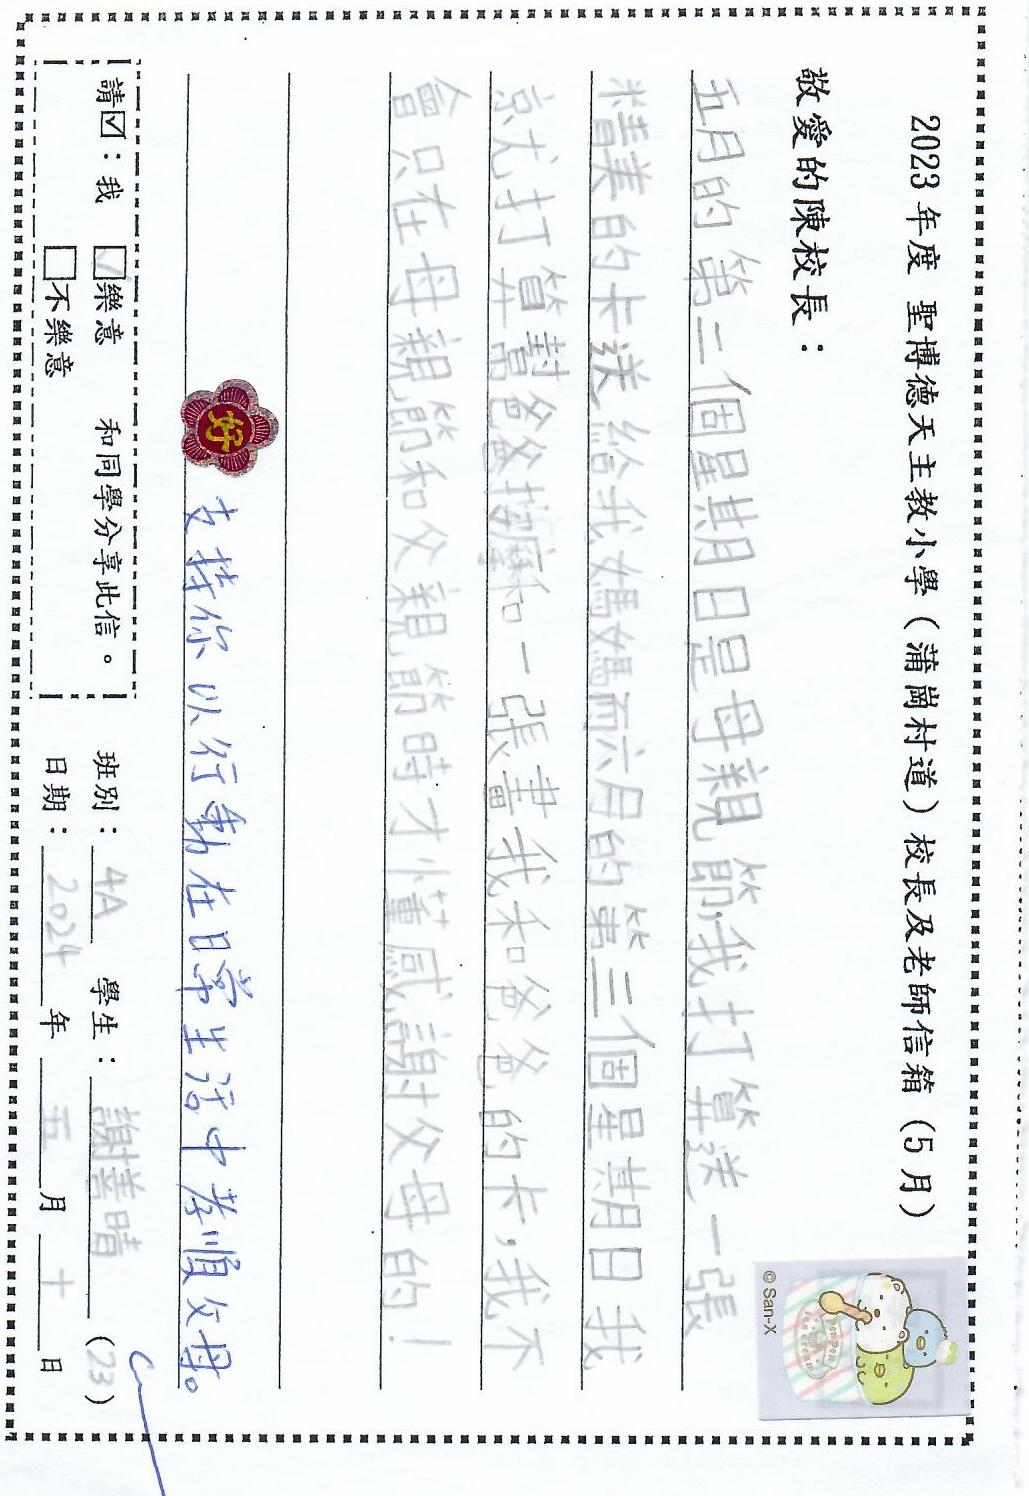 2023 年度 聖博德天主教小學（蒲崗村道）校長及老師信箱（5 月）
敬愛的陳校長：
五月的第二個星期日是母親節，我打算送一張
精美的卡送給我媽媽而六月的第三個星期日我
就打算幫爸爸按摩和一張畫我和爸爸的卡，我不
會只在母親節和父親節時才懂感謝父母的！
好
支持你以行動在日常生活中孝順父母。
請☑：我 ☑樂意 和同學分享此信。
☐不樂意
班別：4A 學生：謝善晴（23）
日期：2024 年 五 月 十 日
© San-X